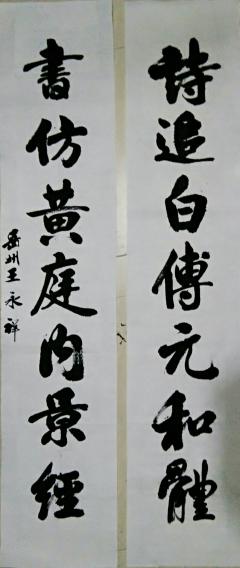 詩追白傅元和體
書仿黃庭内景經
岳州王永祥